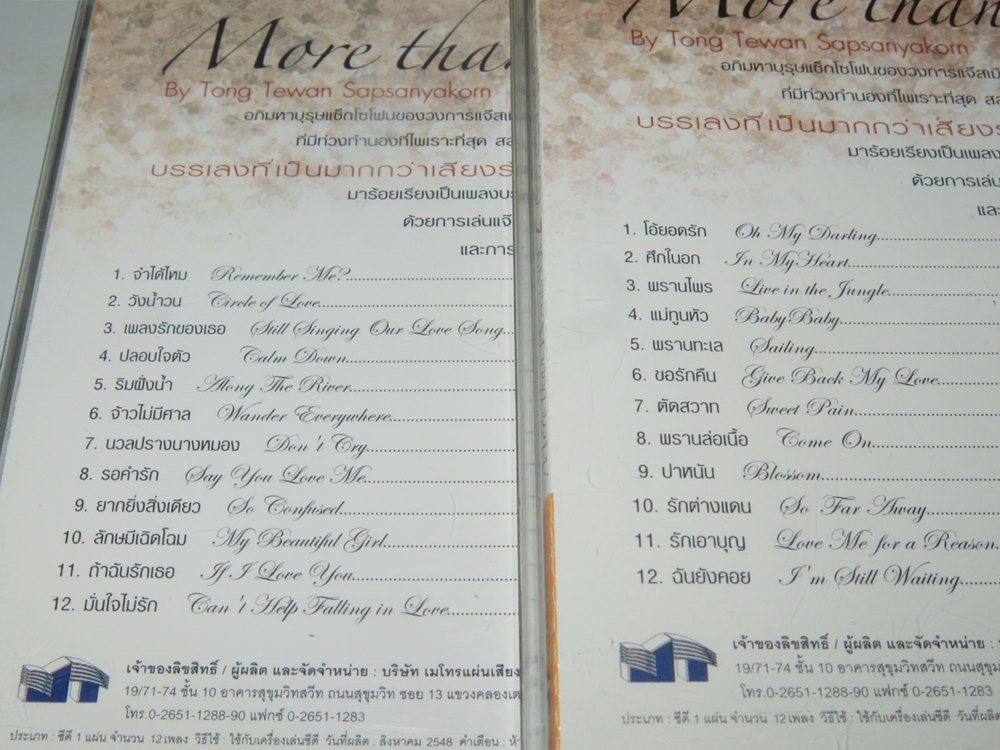 More tha
By Tong Tewan Sapsanyakorn
อภิมหาบุรุษแซ็กโซโฟนของวงการแจ๊ส
ที่มีท่วงทำนองที่ไพเราะที่สุด
บรรเลงที่เป็นมากกว่าเสียง
มาร้อยเรียงเป็นเพลง
ด้วยการเล่นแจ๊
และการ
1. จำได้ไหม Remember Me?
2. วังน้ำวน Circle of Love
3. เพลงรักของเธอ Still Singing Our Love Song
4. ปลอบใจตัว Calm Down
5. ริมฝั่งน้ำ Along The River
6. จ้าวไม่มีศาล Wander Everywhere
7. นวลปรางนางหมอง Don't Cry
8. รอคำรัก Say You Love Me
9. ยากยิ่งสิ่งเดียว So Confused
10. ลักษมีเฉิดโฉม My Beautiful Girl
11. ถ้าฉันรักเธอ If I Love You
12. มั่นใจไม่รัก Can't Help Falling in Love
เจ้าของลิขสิทธิ์ / ผู้ผลิต และจัดจำหน่าย : บริษัท เมโทรแผ่นเสียง
19/71-74 ชั้น 10 อาคารสุขุมวิทสวีท ถนนสุขุมวิท ซอย 13 แขวงคลองเต
โทร.0-2651-1288-90 แฟกซ์ 0-2651-1283
ประเภท : ซีดี 1 แผ่น จำนวน 12 เพลง วิธีใช้ : ใช้กับเครื่องเล่นซีดี วันที่ผลิต : สิงหาคม 2548 คำเตือน : ห้า
More than
By Tong Tewan Sapsanyakorn
อภิมหาบุรุษแซ็กโซโฟนของวงการแจ๊ส
ที่มีท่วงทำนองที่ไพเราะที่สุด
บรรเลงที่เป็นมากกว่าเสียง
มาร้อยเรียงเป็นเพลง
ด้วยการเล่น
และ
1. โอ้ยอดรัก Oh My Darling
2. ศึกในอก In My Heart
3. พรานไพร Live in the Jungle
4. แม่ทูนหัว Baby Baby
5. พรานทะเล Sailing
6. ขอรักคืน Give Back My Love
7. ตัดสวาท Sweet Pain
8. พรานล่อเนื้อ Come On
9. ปาหนัน Blossom
10. รักต่างแดน So Far Away
11. รักเอาบุญ Love Me for a Reason
12. ฉันยังคอย I'm Still Waiting
เจ้าของลิขสิทธิ์ / ผู้ผลิต และจัดจำหน่าย :
19/71-74 ชั้น 10 อาคารสุขุมวิทสวีท ถนนสุขุม
โทร.0-2651-1288-90 แฟกซ์ 0-2651-1283
ประเภท : ซีดี 1 แผ่น จำนวน 12 เพลง วิธีใช้ : ใช้กับเครื่องเล่นซีดี วันที่ผลิต